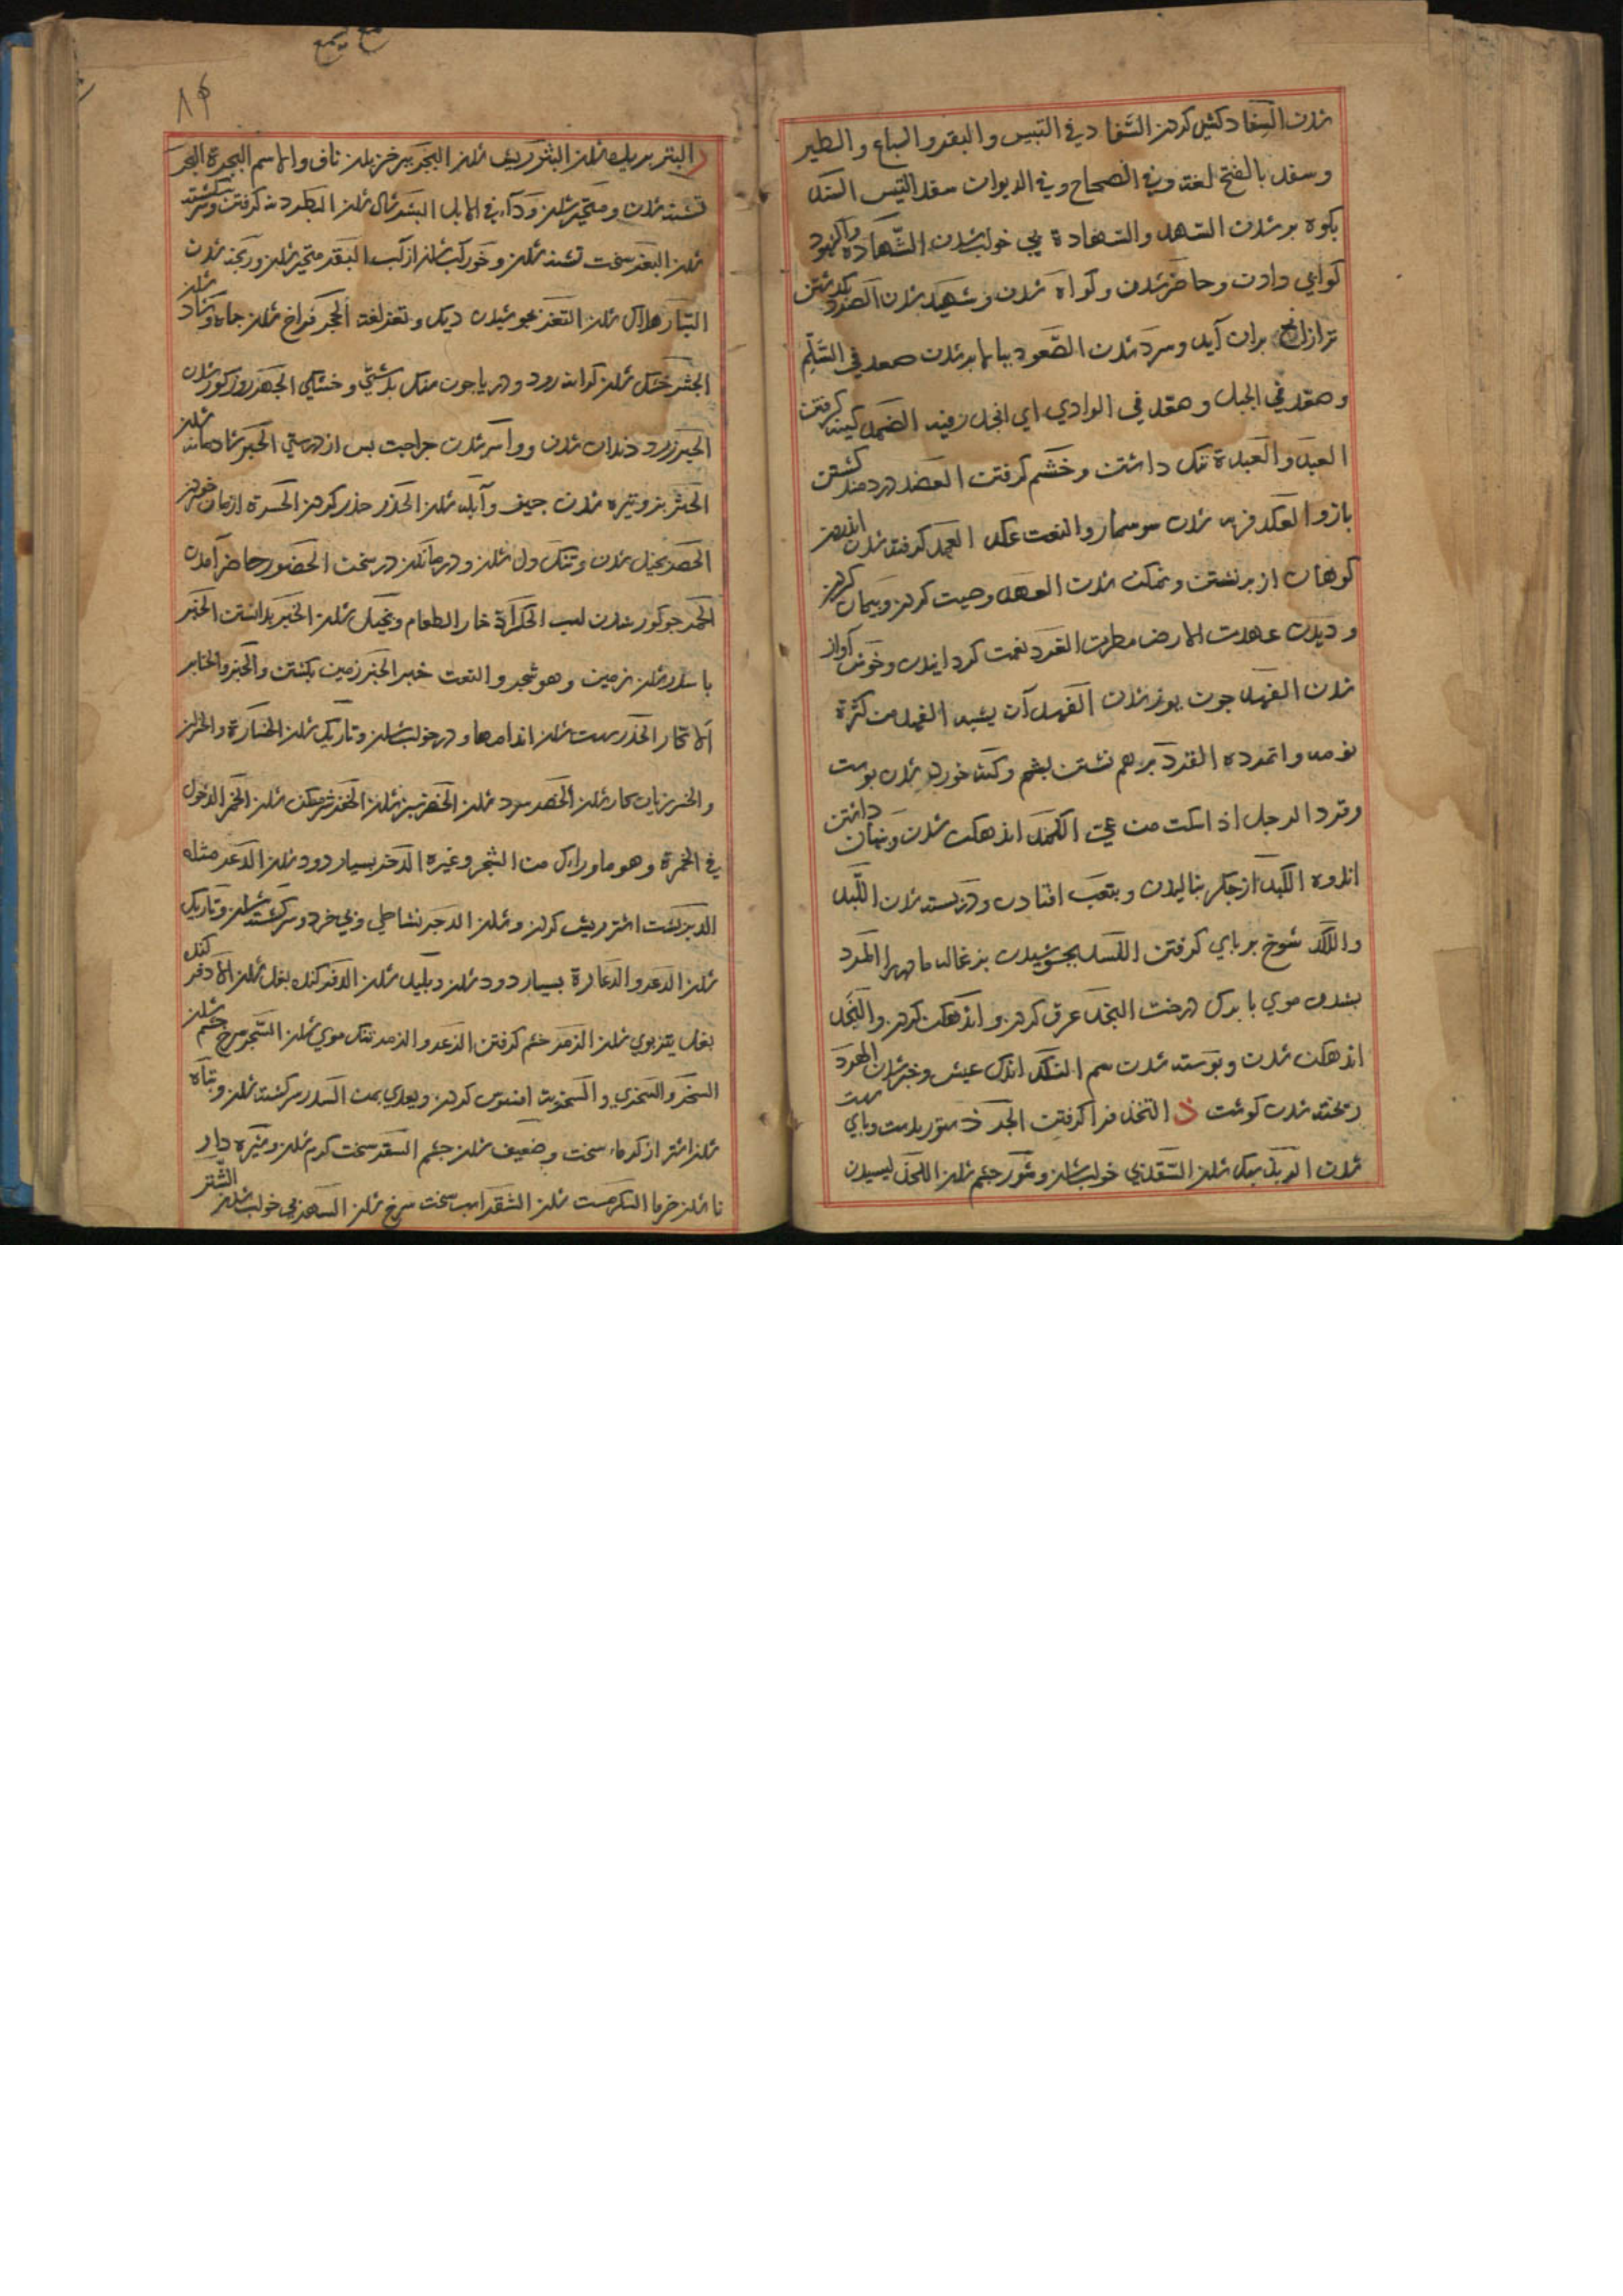 شدن السفاد كشن كردن السفاد في التيس والبقر والسباع والطير
وسفد بالفتح لغة وفي الصحاح وفي الديوان سفد التيس السند
بكوه بر شدن السهد والسهادة بي خواب شدن الشهادة والشهود
كواهي دادن وحاضر شدن وكواه شدن وشهيد شدن الصرد كذشتن
تير از انچ بران آيد وسرد شدن الصعود ببالا بر شدن صعد في السلم
وصعد في الجبل وصعد في الوادي اي انحدر فيه الضمد كينه كرفتن
العبد والعبدة ننك داشتن وخشم كرفتن العضد دردمند كشتن
بازو العكد فربه شدن سوسمار والنعت عكد العمد كوفته شدن اندرون
كوهان از برنشستن ونمكن شدن العهد وصيت كردن وپيمان كردن
وديدن عهدت الارض مطرت الغرد نغمت كردانيدن وخوش آواز
شدن الفهد چون يوز شدن الفهد آن يشبه الفهد من كثرة
نومه وتمدده القرد برهم نشستن پشم وكنه خورده شدن پوست
وقرد الرجل اذا سكت من عي الكمد اندهكن شدن وپنهان داشتن
اندوه الكبد از جكر بناليدن وبتعب افتادن ودربسته شدن اللبد
واللكد شوخ بر پاي كرفتن اللسد بجوشيدن بزغاله مادر را المرد
بشدن موي يا برك درخت النجد عرق كردن واندهكن كردن والنجد
اندهكن شدن وپوسته شدن سم النكد اندك عيش وخير شدن الهرد
ريخته شدن كوشت ذ التخذ فرا كرفتن الجرذ ستور بدست وپاي سست
شدن الربذ سبك شدن الشقذ بي خواب شدن وشور چشم شدن اللجذ ليسيدن
٨٩
ر البتر بريده شدن البثر ريش شدن البجر بيرون خزيدن ناف والاسم البجرة البحر
تشنه شدن ومتحير شدن وداء في الابل البسر شدن البطر دنه كرفتن وسركشته
شدن البغر سخت تشنه شدن وخوراك شدن از آب البقر متحير شدن ورنجه شدن
التبار هلاك شدن التغر بجوشيدن ديك وتغر لغة الجحر فراخ شدن چاه وشاد شدن
الجشر خشك شدن كرانه رود ودريا چون سنك بدرشتي وخشكي الجهر روز كور شدن
الحبر زرد دندان شدن ووا سر شدن جراحت پس از درستي الحبر شادمانه شدن
الحثر بثر وتيره شدن چيز وآبله شدن الحذر حذر كردن الحسرة ارمان خوردن
الحصر بخيل شدن وتنك دل شدن ودرماندن در سخن الحضور حاضر آمدن
الحمر جو كوارد شدن اسب الحكرة خار الطعام وبخيل شدن الخبر بدانستن الخبر
با سدر شدن زمين وهو شجر والنعت خبر الخبر زمين بكشتن والخبر والخنابر
الاكار الخدر سست شدن اندامها ودر خواب شدن وتاريك شدن الخسارة والخسران
والخسر زيان كار شدن الخصر سرد شدن الخضر سبز شدن الخفر شرمكن شدن الخمر الدخول
في الخمرة وهو ما وراك من الشجر وغيره الدخر بسيار دود شدن الدعر مثله
الدبر پشت اشتر ريش كردن وشدن الدجر نشاطي وبي خرد وسركشته شدن وتاريك
شدن الدعر والدعارة بسيار دود شدن وپليد شدن الدفر كنده بغل شدن الاذفر كنده
بغل تيز بوي شدن الذمر خشم كرفتن الذعر والزمر تنك موي شدن السجر سرخ چشم شدن
السخر والسخري والسخرية افسوس كردن ويعدي بمن السدر سركشته شدن وتباه
شدن اشتر از كرماء سخت وضعيف شدن چشم السقر سخت كرم شدن وشيره دار
نا شدن خرما السكر مست شدن الشقر اسب سخت سرخ شدن السهر بي خواب شدن الشتر